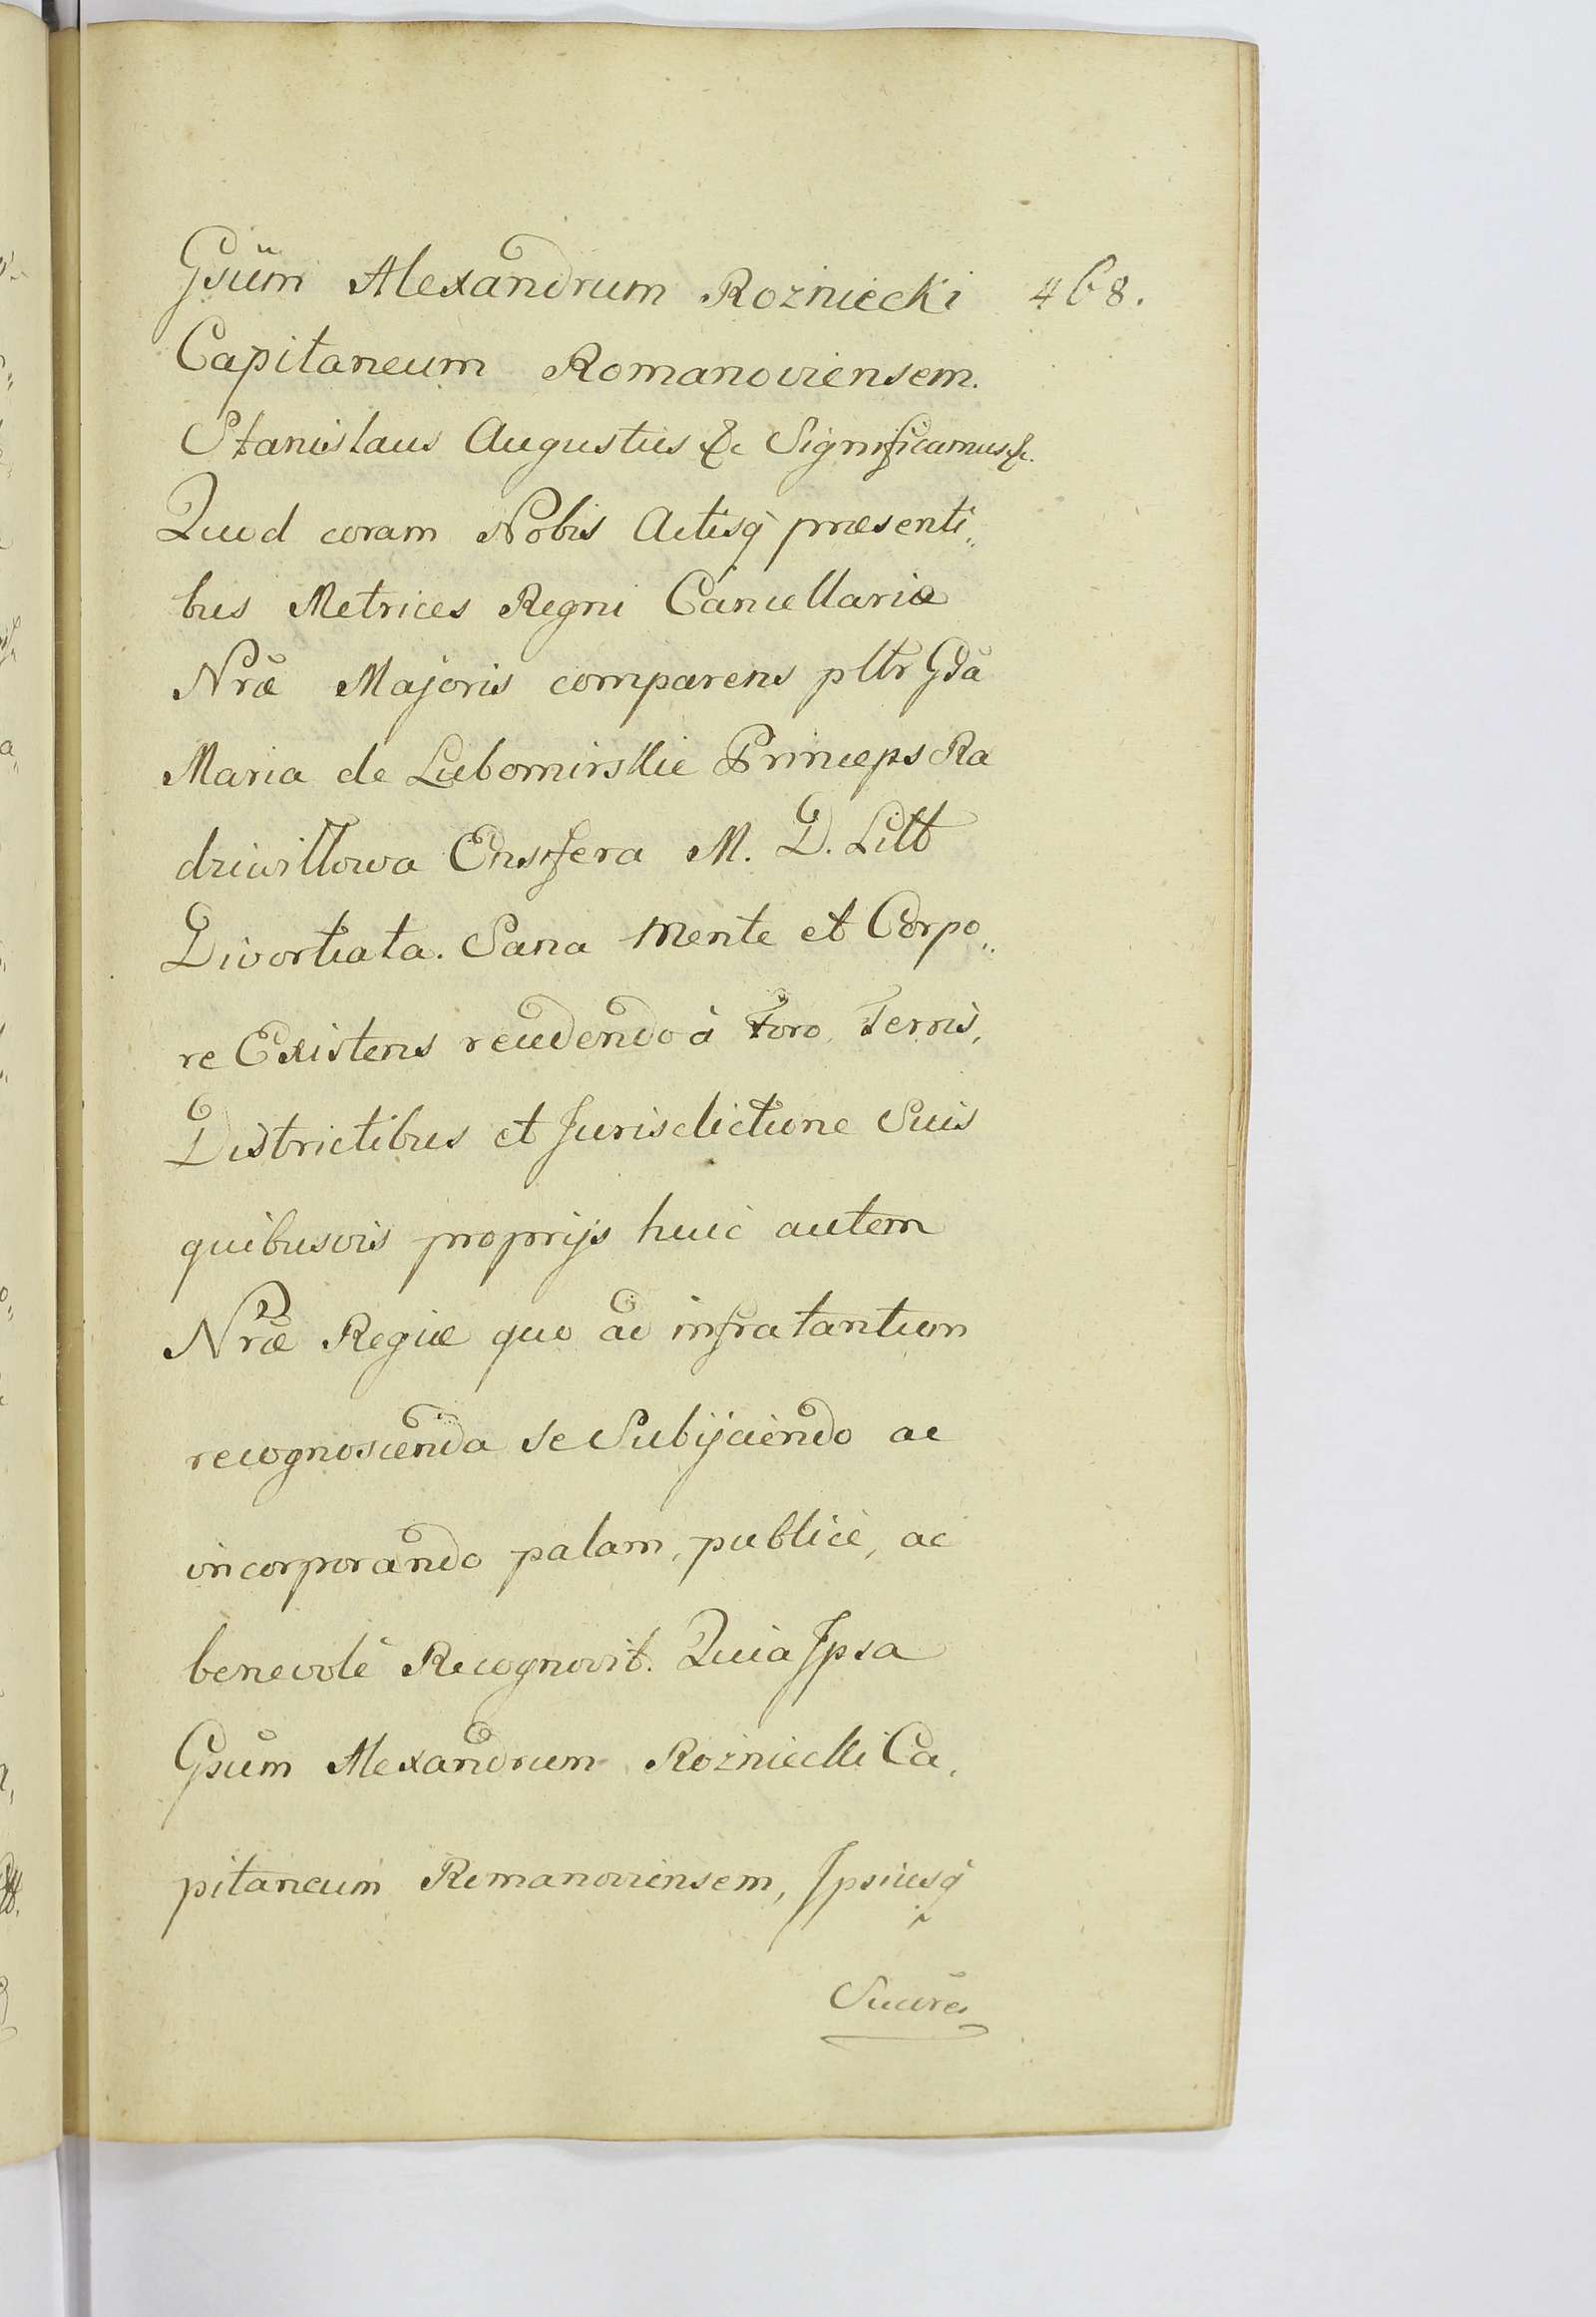 Gsum̃ Alexandrum Rozniecki 468.
Capitaneum Romanoviensem.
Stanislaus Augustus &c Significamus &c.
Quod coram Nobis Actisq̀ praesenti„
bus Metrices Regni Cancellariæ
Nræ̃ Majoris comparens pltr Gdã
Maria de Lubomirskie Princeps Ra
dziwiłłowa Ensifera M. D. Litt
Divortiata. Sana Mente et Corpo„
re Existens recedendo à Foro, Terris,
Districtibus et Jurisdictione Suis
quibusvis proprijs huic autem
Nræ̃ Regiæ quo ad infra tantum
recognoscenda se Subijciendo ac
incorporando palam, publicè, ac
benevolè Recognovit. Quia Ipsa
Gsum̃ Alexandrum Rozniecki Ca„
pitaneum Romanoviensem, Ipsiusq̀
Succrẽs